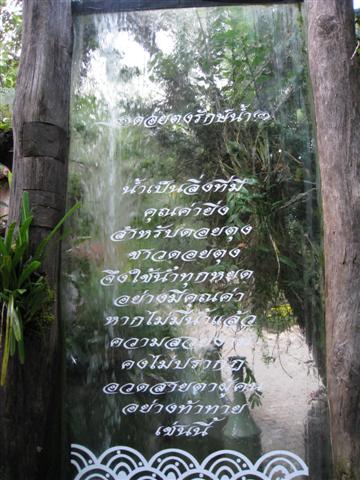 ดอยตุงรักษ์น้ำ
น้ำเป็นสิ่งที่มี
คุณค่ายิ่ง
สำหรับดอยตุง
ชาวดอยตุง
จึงใช้น้ำทุกหยด
อย่างมีคุณค่า
หากไม่มีน้ำแล้ว
ความสวยงาม
คงไม่ปรากฏ
อวดสายตาผู้คน
อย่างท้าทาย
เช่นนี้